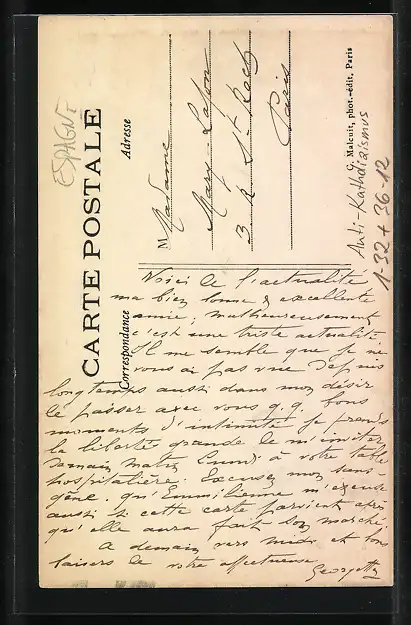 ESPAGNE
CARTE POSTALE
Correspondance
Adresse
M Madame
Mary-Lafon
3 R St Roch
Paris
G. Malcuit, phot.-édit, Paris
Anti-Kathdizismus
1-32 + 36-12
Voici de l'actualité
ma bien bonne & excellente
amie; malheureusement
c'est une triste actualité
Il me semble que je ne
vous ai pas vue depuis
longtemps aussi dans mon désir
de passer avec vous q.q. bons
moments d'intimité je prends
la liberté grande de m'inviter
demain matin Lundi à votre table
hospitalière. Excusez mon sans-
gêne. qu'Emmélienne m'excuse
aussi si cette carte parvient après
qu'elle aura fait son marché.
A demain vers midi et bons
baisers de votre affectueuse
Georgette